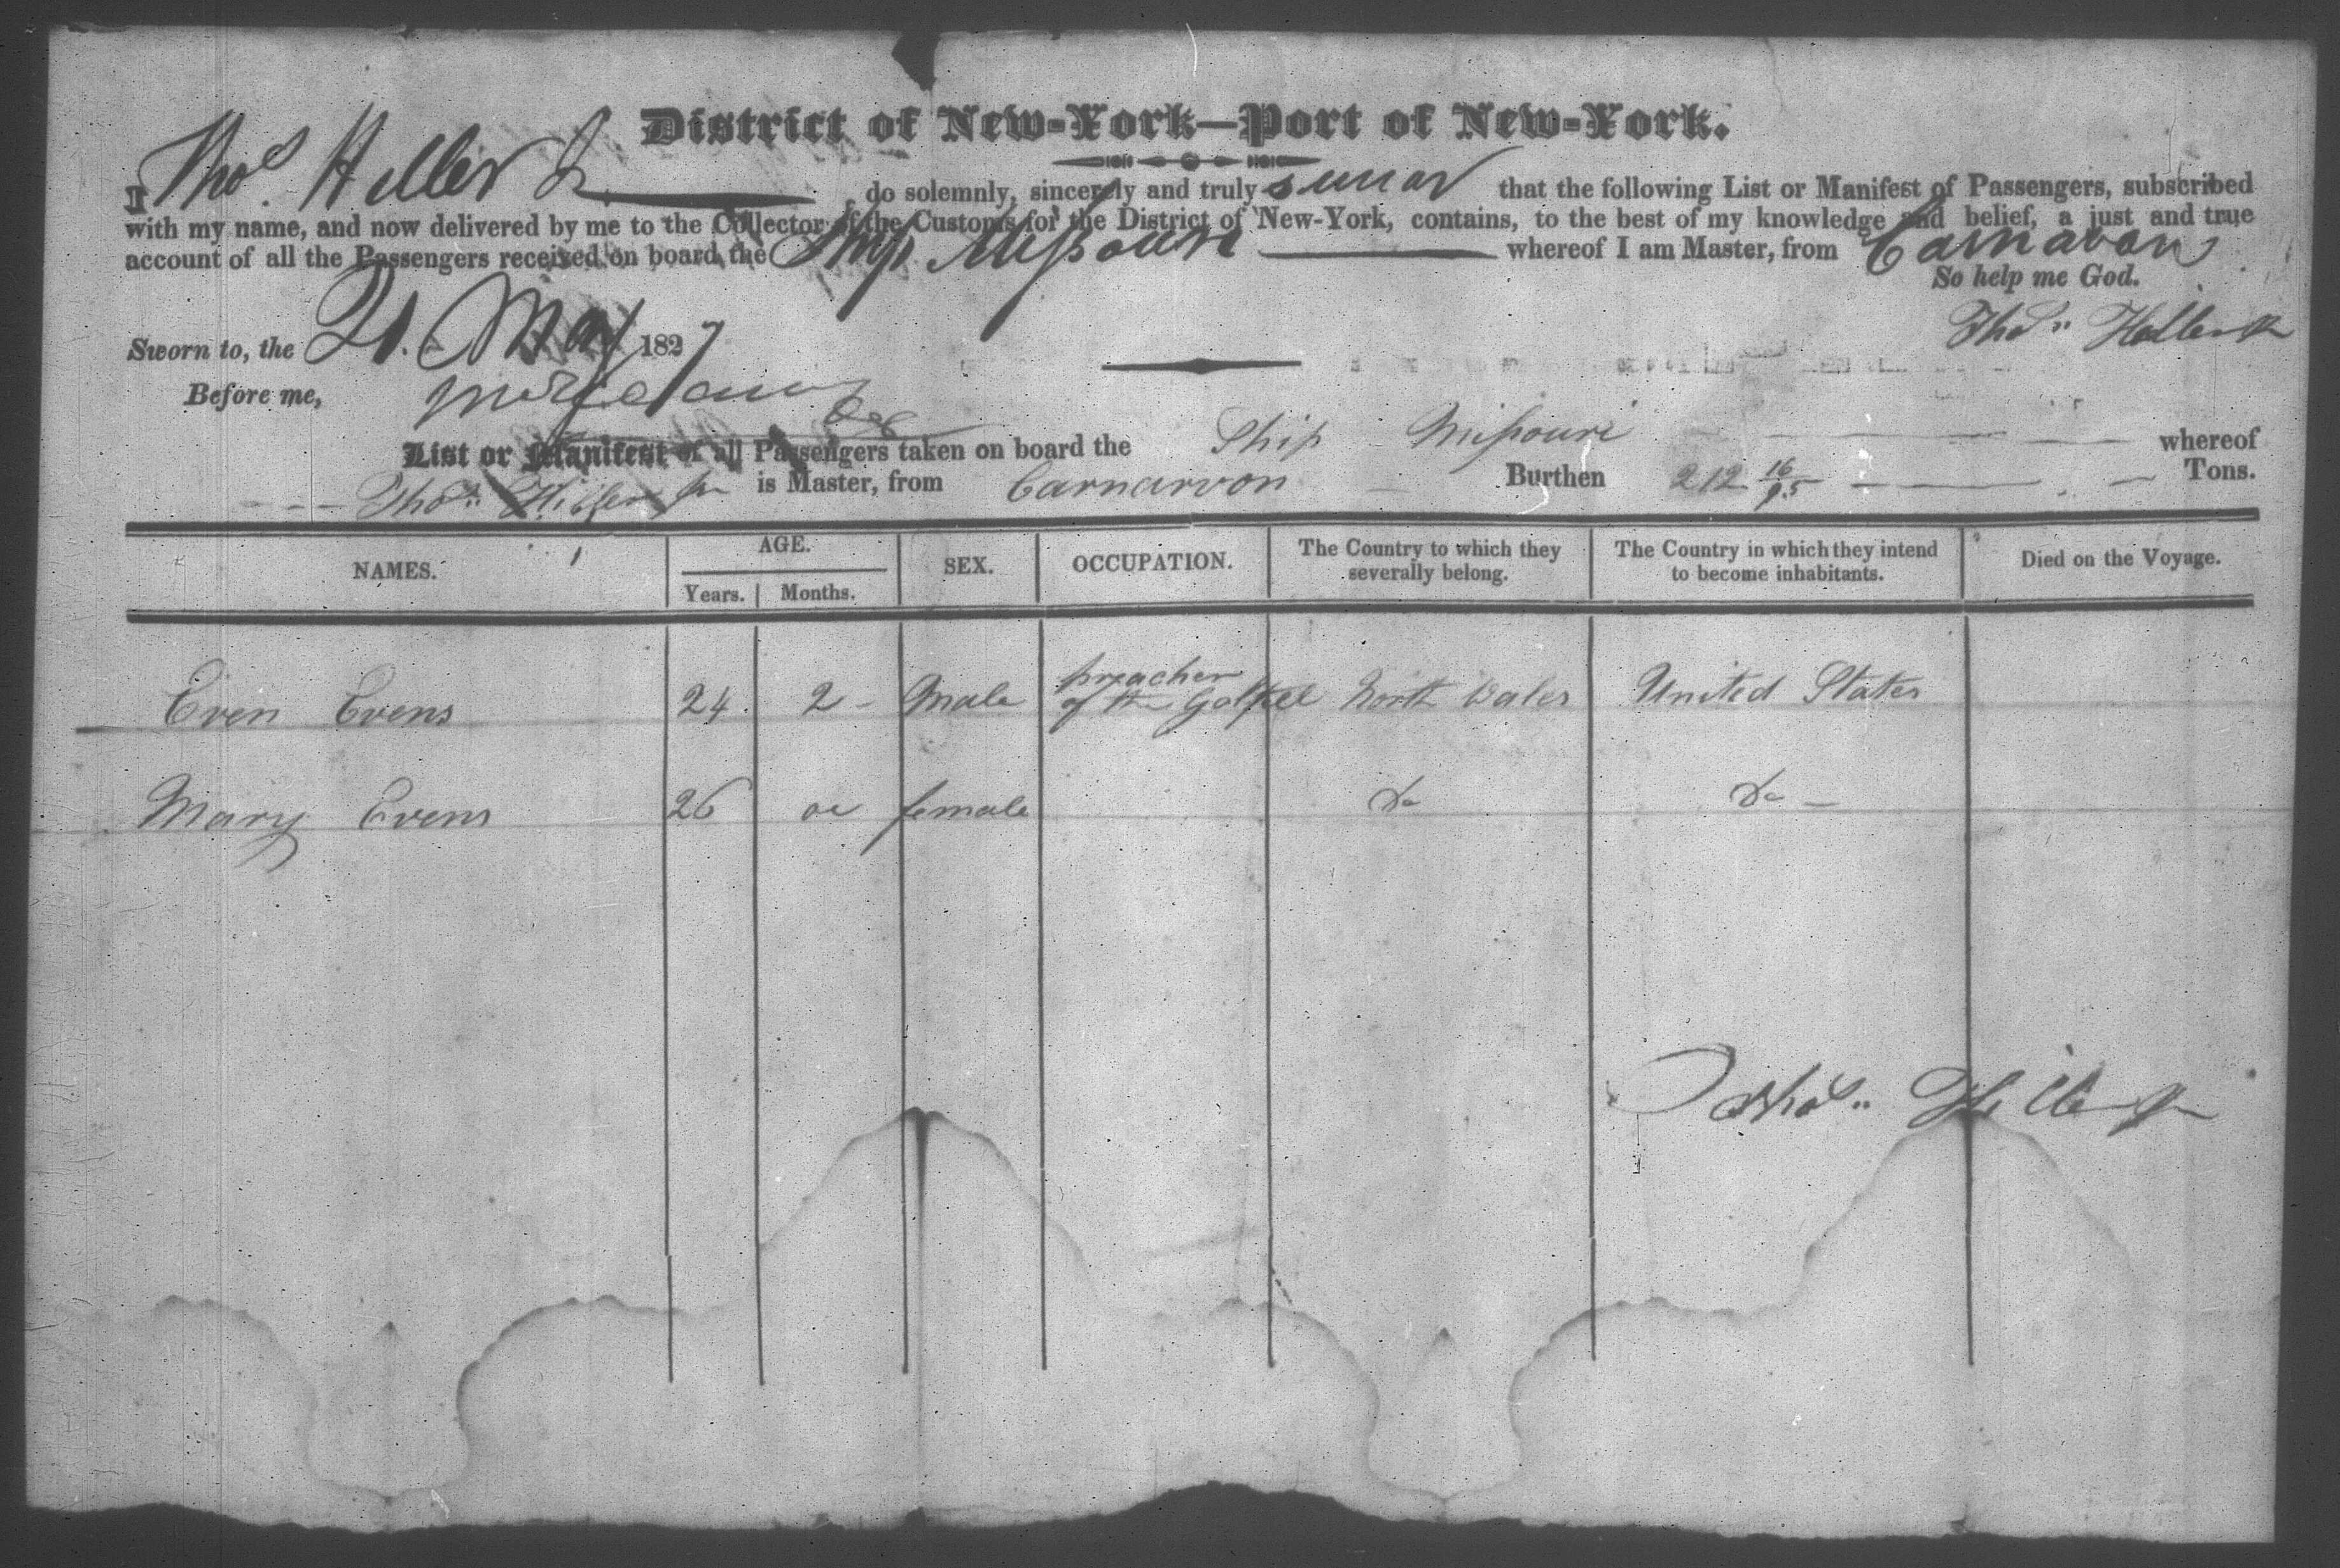 District of New-York—Port of New-York.
I Thos. Hiller Jr do solemnly, sincerely and truly swear that the following List or Manifest of Passengers, subscribed
with my name, and now delivered by me to the Collector of the Customs for the District of New-York, contains, to the best of my knowledge and belief, a just and true
account of all the Passengers received on board the Ship Missouri whereof I am Master, from Carnavon
So help me God.
Sworn to, the 21. May 1827
Thos. Hiller Jr
Before me,
List or Manifest of all Passengers taken on board the Ship Missouri whereof
Thos. Hiller Jr is Master, from Carnarvon Burthen 212 16/95 Tons.
NAMES. AGE. SEX. OCCUPATION. The Country to which they severally belong. The Country in which they intend to become inhabitants. Died on the Voyage.
Years. Months.
Even Evens 24 2 Male preacher of the Gospell North Wales United States
Mary Evens 26 female Do Do
Thos. Hiller Jr